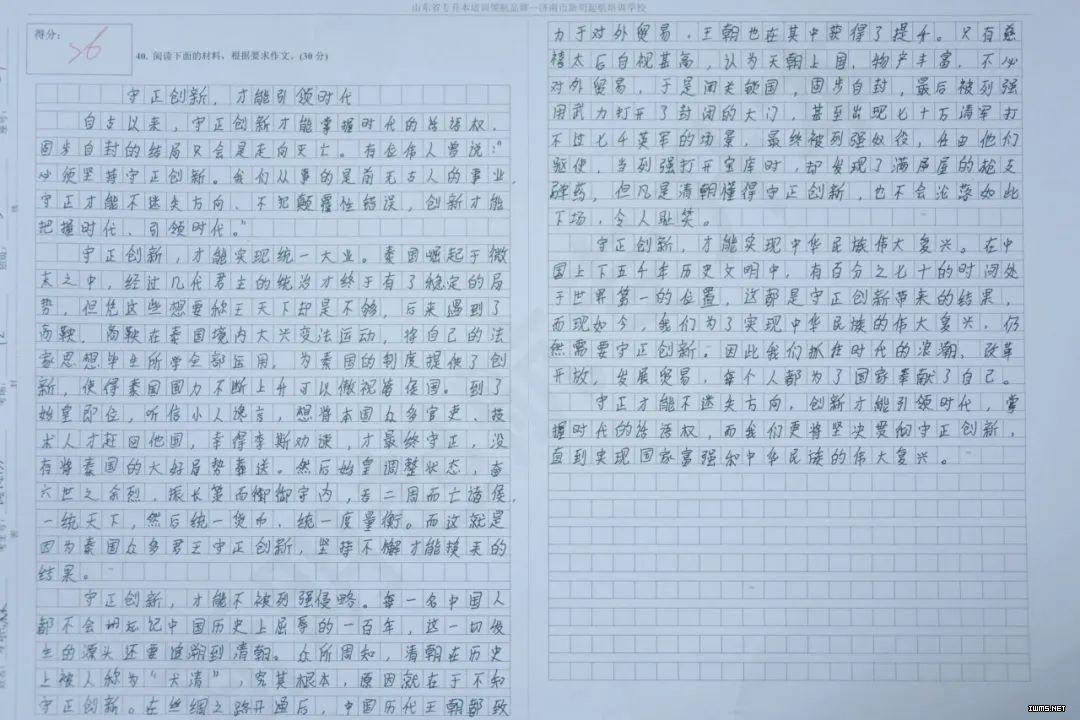 山东省专升本培训领航品牌—济南市
得分：
26
40. 阅读下面的材料，根据要求作文。(30 分)
守正创新，才能引领时代
自古以来，守正创新才能掌握时代的话语权，
固步自封的结局只会是走向灭亡。有位伟人曾说：“
必须坚持守正创新。我们从事的是前无古人的事业，
守正才能不迷失方向、不犯颠覆性错误，创新才能
把握时代、引领时代。”
守正创新，才能实现统一大业。秦国崛起于微
末之中，经过几代君主的统治才终于有了稳定的局
势，但凭这些想要称王天下却是不够，后来遇到了
商鞅，商鞅在秦国境内大兴变法运动，将自己的法
家思想毕生所学全部运用，为秦国的制度提供了创
新，使得秦国国力不断上升可以傲视诸侯国。到了
始皇即位，听信小人谗言，想将本国众多官吏、技
术人才赶回他国，幸得李斯劝谏，才最终守正，没
有将秦国的大好局势葬送。然后始皇调整状态，奋
六世之余烈，振长策而御御宇内，吞二周而亡诸侯，
一统天下，然后统一货币，统一度量衡。而这就是
因为秦国众多君王守正创新，坚持不懈才能换来的
结果。
守正创新，才能不被列强侵略。每一名中国人
都不会忘记中国历史上屈辱的一百年，这一切发
生的源头还要追溯到清朝。众所周知，清朝在历史
上被人称为“大清”，究其根本，原因就在于不知
守正创新。在丝绸之路开通后，中国历代王朝都致
力于对外贸易，王朝也在其中获得了提升。只有慈
禧太后自视甚高，认为天朝上国，物产丰富，不必
对外贸易，于是闭关锁国，固步自封，最后被列强
用武力打开了封闭的大门，甚至出现七十万清军打
不过七千英军的场景，最终被列强奴役，任由他们
驱使，当列强打开宝库时，却发现了满屋屋的
，但凡是清朝懂得守正创新，也不会沦落如此
下场，令人耻笑。
守正创新，才能实现中华民族伟大复兴。在中
国上下五千年历史文明中，有百分之七十的时间处
于世界第一的位置，这都是守正创新带来的结果，
而现如今，我们为了实现中华民族的伟大复兴，仍
然需要守正创新。因此我们抓住时代的浪潮，改革
开放，发展贸易，每个人都为了国家奉献了自己。
守正才能不迷失方向，创新才能引领时代，掌
握时代的话语权，而我们更将坚决贯彻守正创新，
直到实现国家富强和中华民族的伟大复兴。
IWMS.NET